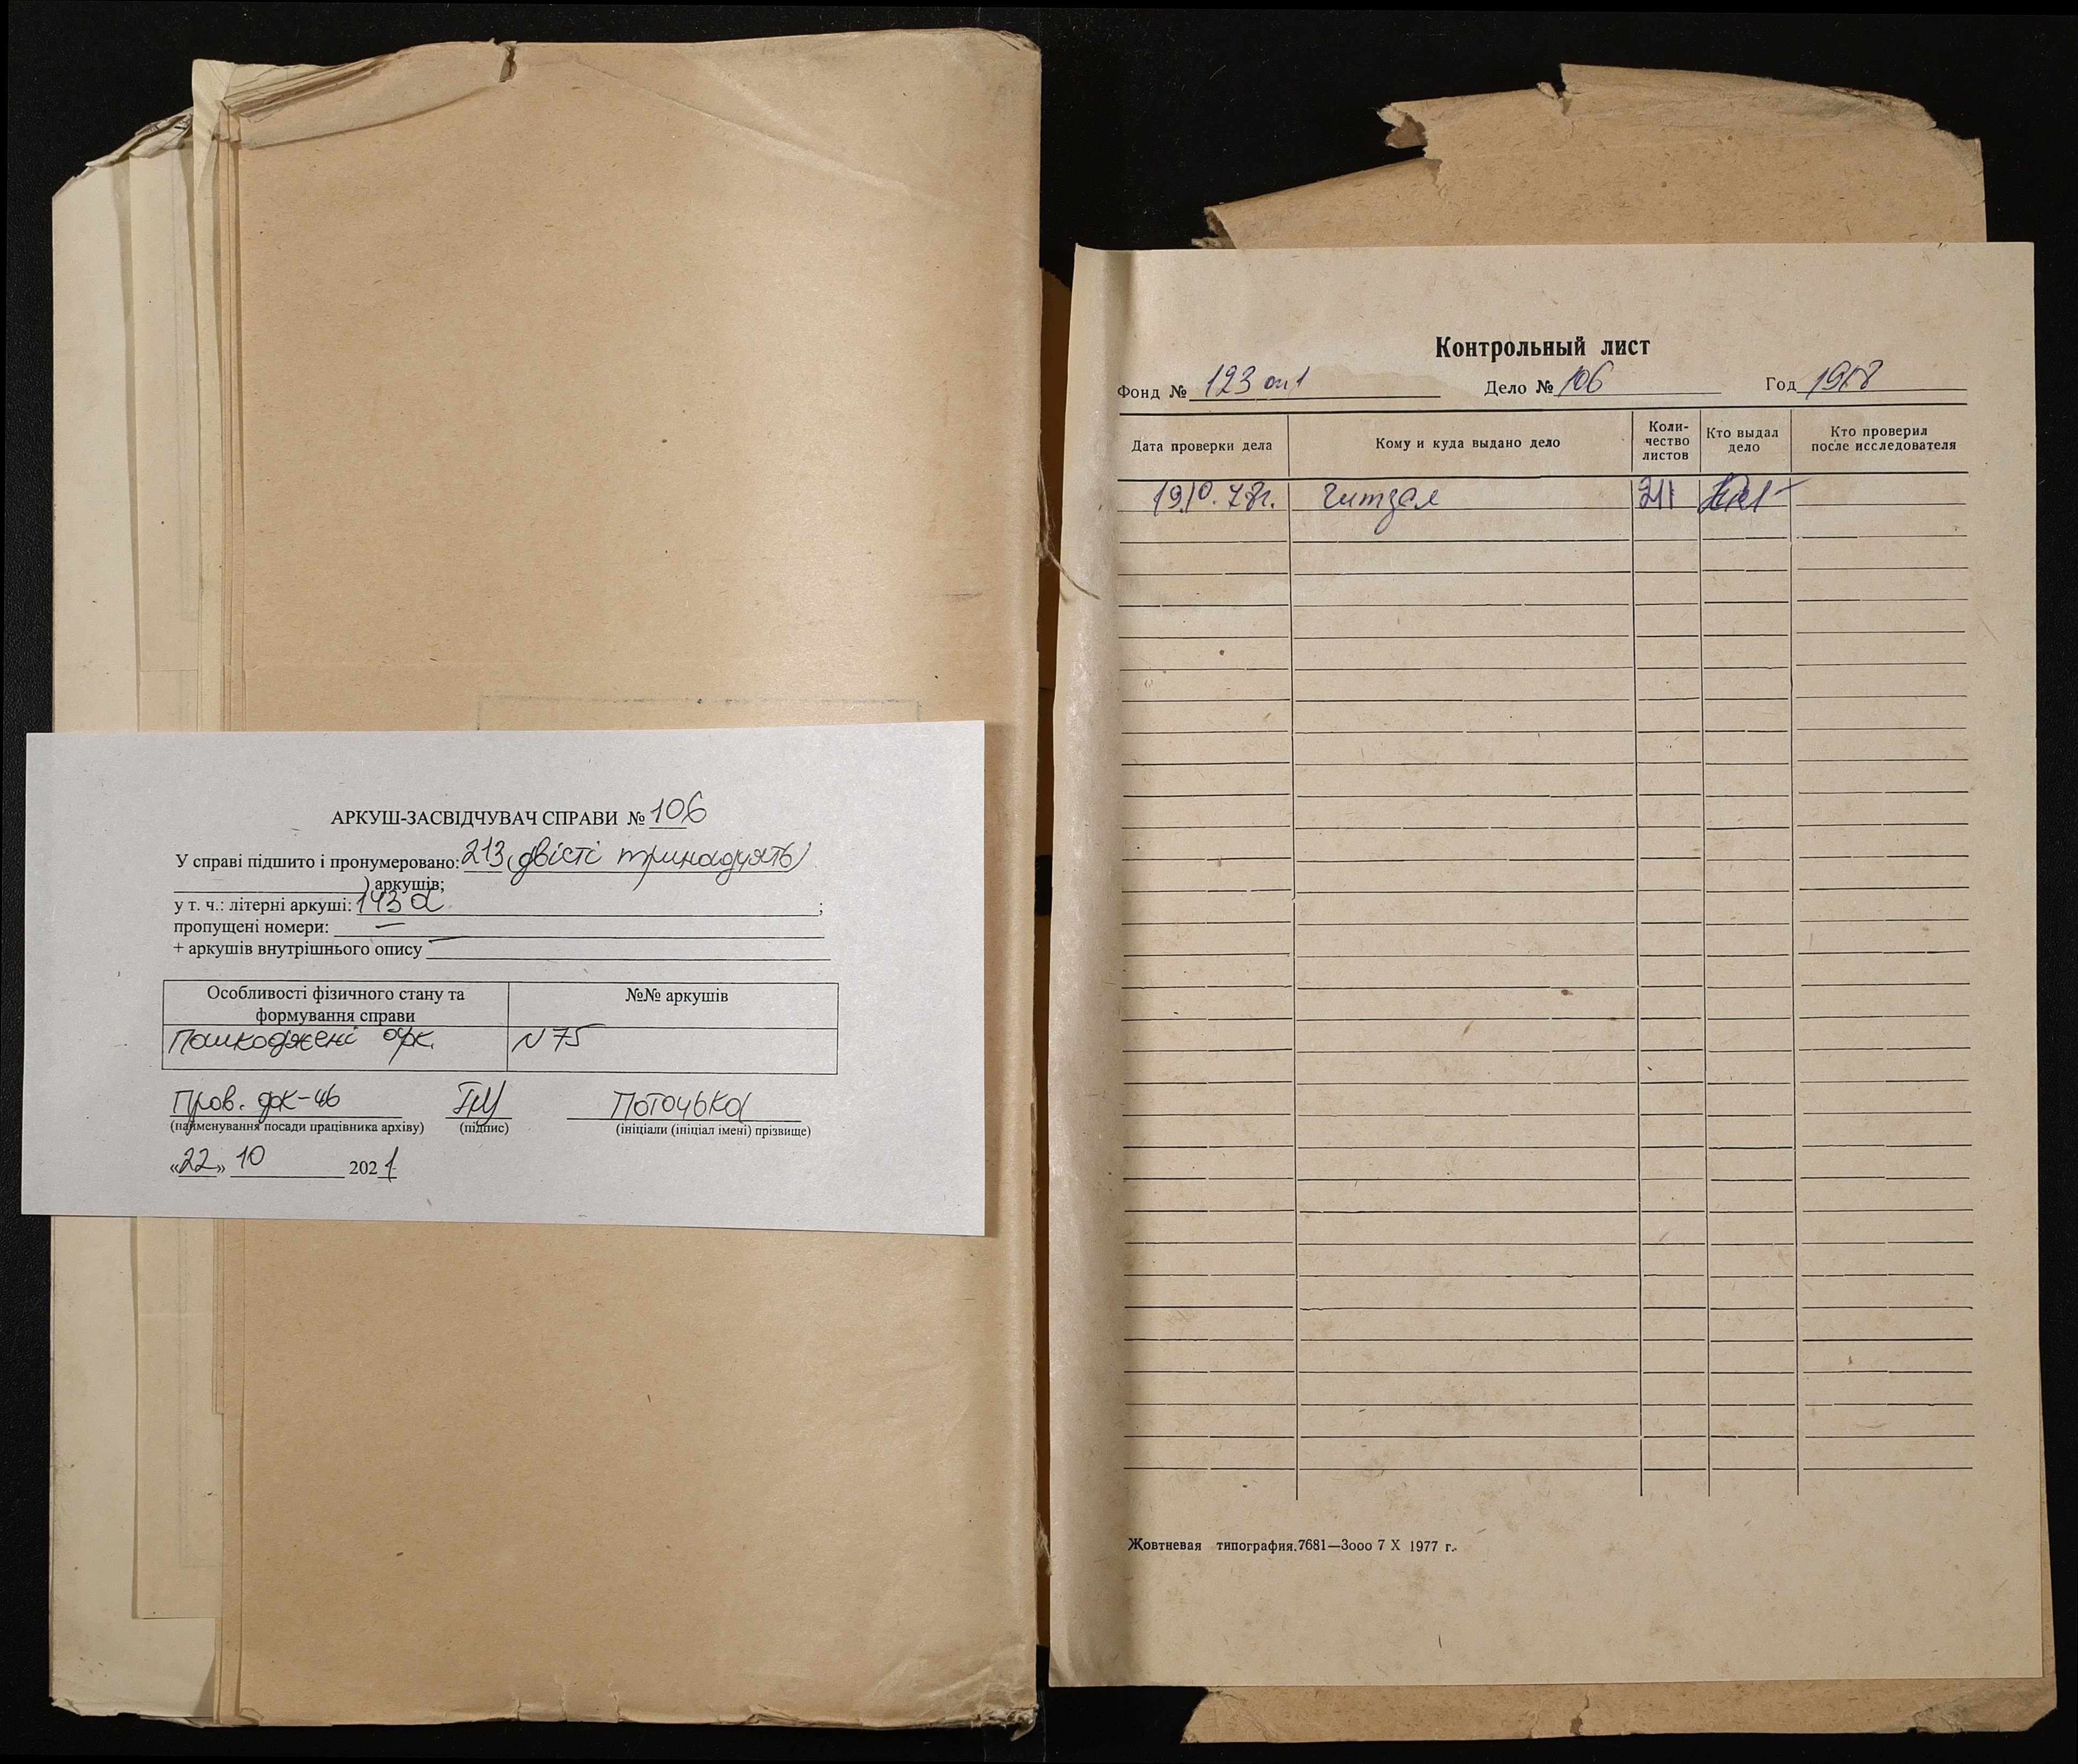 АРКУШ-ЗАСВІДЧУВАЧ СПРАВИ № 106
У справі підшито і пронумеровано: 213 (двісті тринадцять)
) аркушів;
у т. ч.: літерні аркуші: 143а ;
пропущені номери: —
+ аркушів внутрішнього опису —
Особливості фізичного стану та формування справи
№№ аркушів
Пошкоджені арк.
№ 75
Пров. док-тів
Поточька
(найменування посади працівника архіву) (підпис) (ініціали (ініціал імені) прізвище)
«22» 10 2021
Контрольный лист
Фонд № 123 оп1 Дело № 106 Год 1918
Дата проверки дела
Кому и куда выдано дело
Коли-
чество
листов
Кто выдал
дело
Кто проверил
после исследователя
19.10.78г. читзал 211
Жовтневая типография.7681—3ооо 7 X 1977 г.